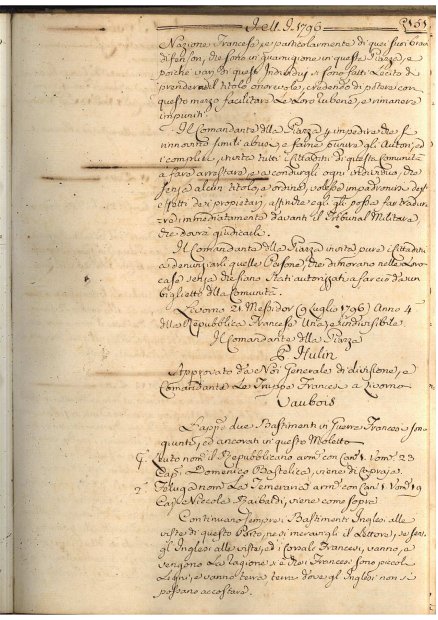 Nell' A. 1796 151
Nazione Francese, e particolarmente di quei suoi
difensori, che sono in guarnigione in questa Piazza, e
poiché varj di questi Individui si sono fatti Lecito di
prendere tal titolo onorevole, credendo di potere con
questo mezzo facilitare Le Loro rubene, e rimanere
impuniti.
Il Comandante della Piazza p impedire che si
rinnovino simili abusi, e farne punire gli Autori, ed
i complici, invita tutti i Cittadini di questa Comunità
a fare arrestare, e a condurgli ogni Individuo, che
senza alcun titolo, e ordine, volesse impadronirsi degl'
effetti dei proprietarj, affinche egli gli possa far tradur-
re immediatamente davanti il Tribunal Militare,
che dovrà giudicarli.
Il Comandante della Piazza invita pure i Cittadini
a denunziarli quelle Persone, che dimorano nelle Loro
case senza che siano stati autorizzati a farcio da un
biglietto della Comunità.
Livorno 21. Messidor (9 Luglio 1796) Anno 4
della Repubblica Francese Una, e indivisibile.
Il Comandante della Piazza
Hulin
Approvato da Noi Generale di divisione, e
Comandante Le Truppe Francesi a Livorno
Vaubois
due Bastimenti in Guerra Francesi son
giunti, ed ancorati in questo Moletto
1° Liuto nom. il Repubblicano arm. con Can. 1. Vom. 23
Cap. Domenico Bastelica, viene di Capraja
2° Feluga nom. La Temeraria arm. con Can. 1 Vom. 19
Cap. Niccola Baibaldi, viene come sopra
Continuano sempre i Bastimenti Inglesi alle
viste di questo Porto, ne si meravigli il Lettore, se sen.
gl' Inglesi alle viste, ed i Corsali Francesi, vanno, e
vengono La ragione si è che i Francesi sono piccoli
Legni, e vanno terra terra dove gl' Inglesi non si
possano accostare.